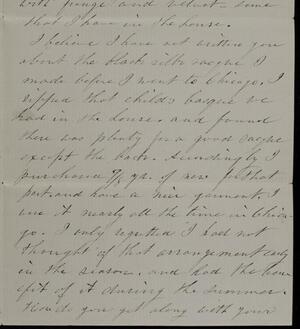 with fringe and velvet some
that I have in the house.
I believe I have not written you
about the black silk sacque I
made before I went to Chicago. I
ripped that child's basque we
had in the house and found
there was plenty for a good sacque
except the back. Accordingly I
purchased 7/8 yd. of new for that
part and have a nice garment. I
use it nearly all the time in Chica-
go. I only regretted I had not
thought of that arrangement early
in the season, and had the ben-
efit of it during the summer.
How did you get along with your